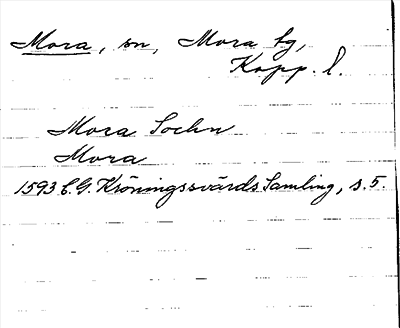 Mora, sn, Mora tg,
Kopp. l.
Mora Sochn
Mora
1593 C.G. Kröningssvärds Samling, s. 5.